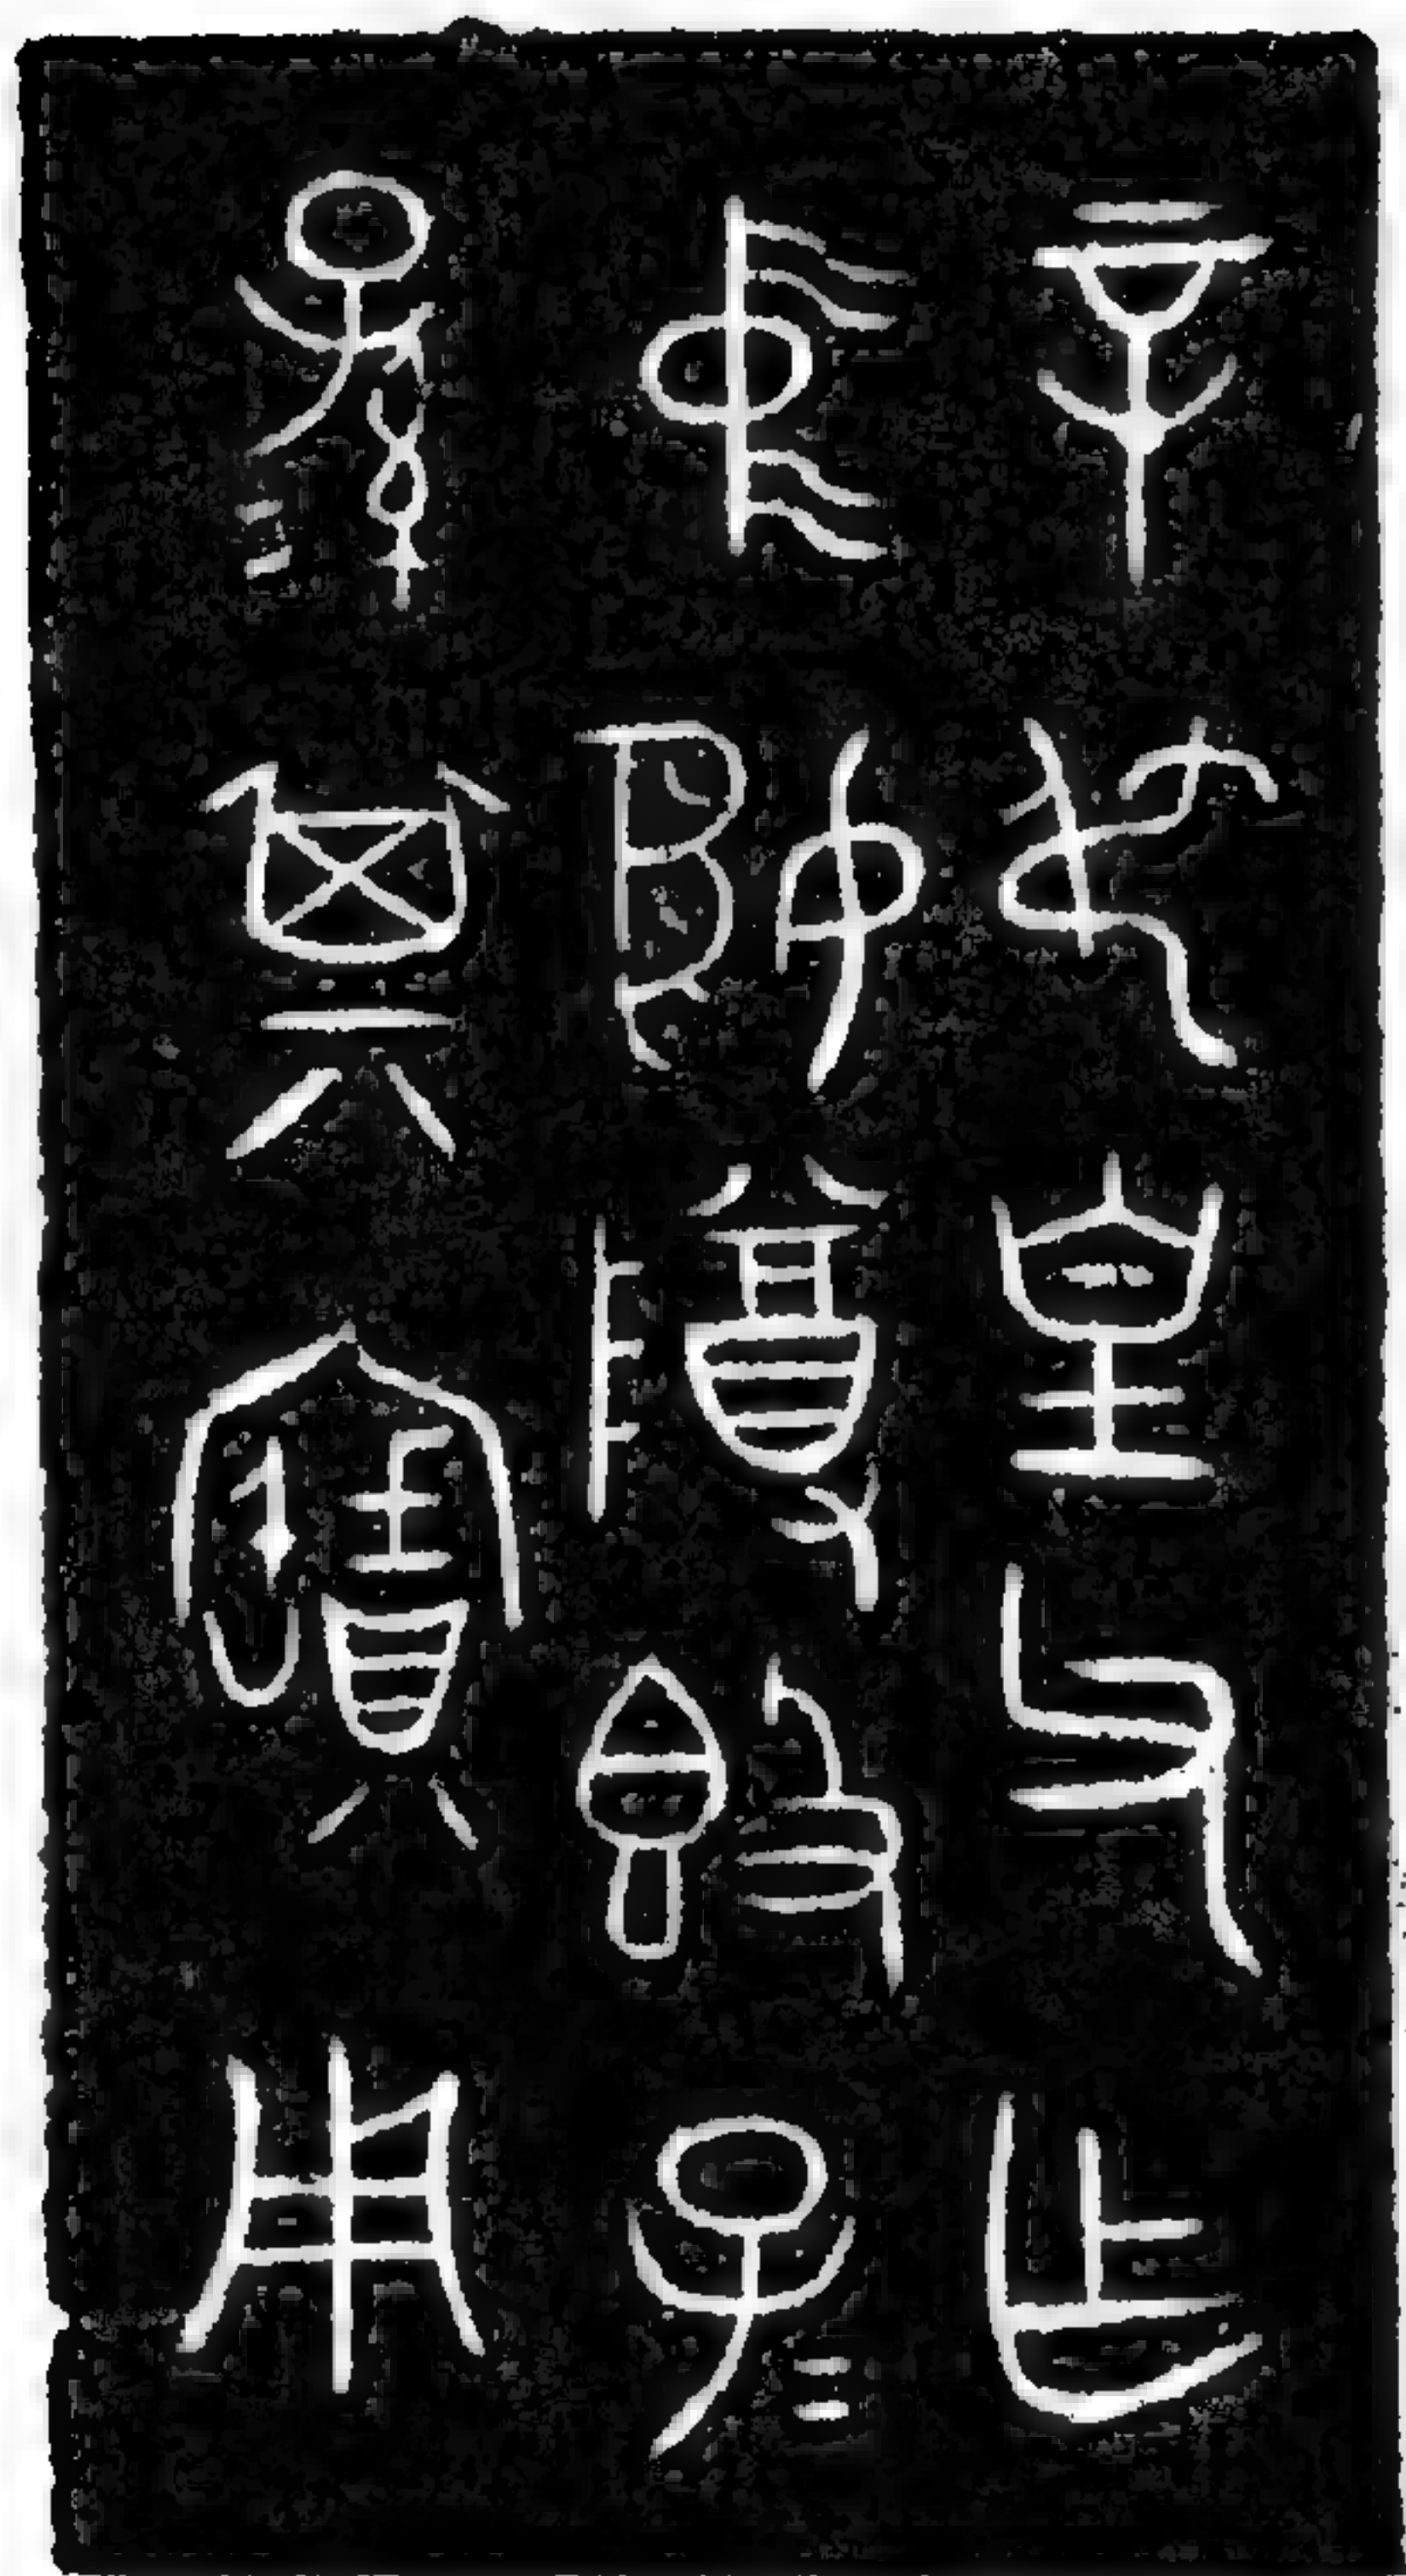 辛叔皇父乍
中姬尊簋子=
孫=其寶用